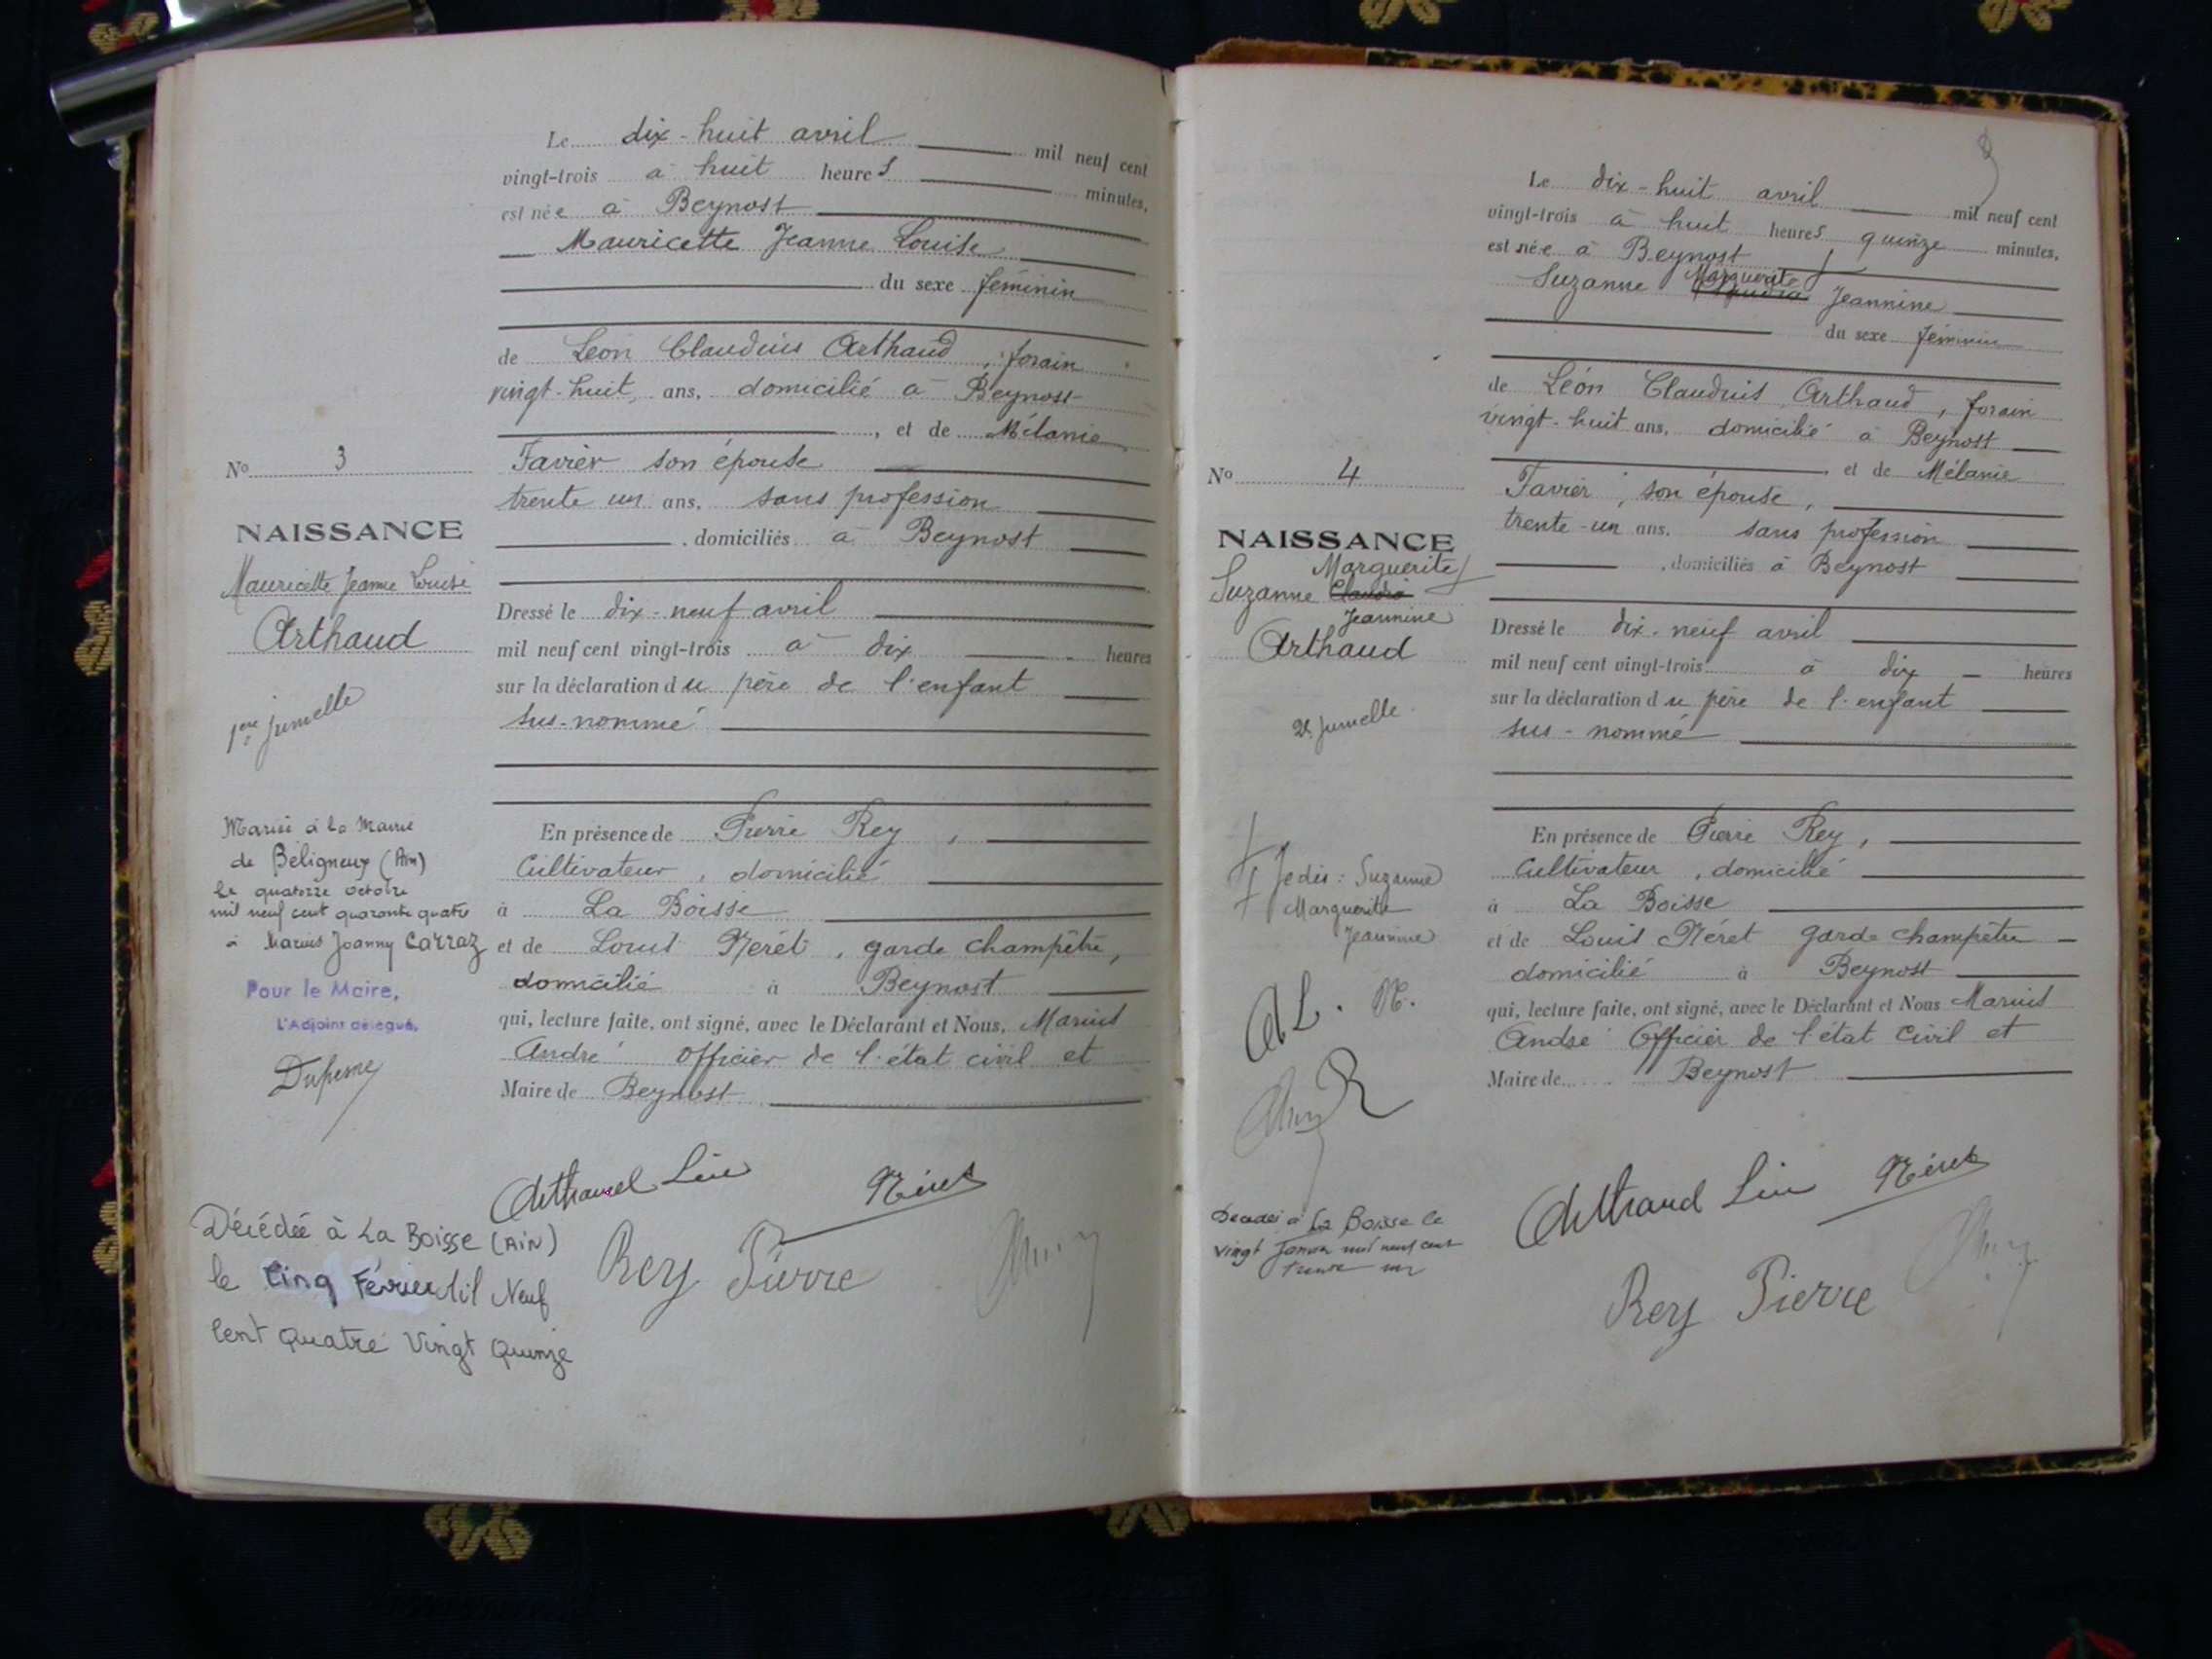 Le dix-huit avril mil neuf cent
vingt-trois à huit heures minutes,
est née à Beynost
Mauricette Jeanne Louise
du sexe féminin
de Léon Claudius Arthaud, forain
vingt-huit, ans, domicilié à Beynost
, et de Mélanie
Favier son épouse
trente un ans, sans profession
, domiciliés à Beynost
Dressé le dix-neuf avril
mil neuf cent vingt-trois à dix heures
sur la déclaration du père de l'enfant
sus-nommé
En présence de Pierre Rey,
Cultivateur, domicilié
à La Boisse
et de Louis Néret, garde champêtre,
domicilié à Beynost
qui, lecture faite, ont signé, avec le Déclarant et Nous, Marius
André Officier de l'état civil et
Maire de Beynost
Arthaud Léon Néret
Rey Pierre
No 3
NAISSANCE
Mauricette Jeanne Louise
Arthaud
1ere jumelle
Mariée à la Mairie
de Béligneux (Ain)
le quatorze octobre
mil neuf cent quarante quatre
à Marius Joanny Carraz
Pour le Maire,
L'Adjoint délégué,
Décédée à La Boisse (AIN)
le Cinq Février Mil Neuf
Cent Quatre Vingt Quinze
Le dix-huit avril mil neuf cent
vingt-trois à huit heures quinze minutes,
est née à Beynost
Marguerite
Suzanne Claudia Jeannine
du sexe féminin
de Léon Claudius Arthaud, forain
vingt-huit ans, domicilié à Beynost
et de Mélanie
Favier, son épouse,
trente-un ans, sans profession
, domiciliés à Beynost
Dressé le dix-neuf avril
mil neuf cent vingt-trois à dix heures
sur la déclaration du père de l'enfant
sus-nommé
En présence de Pierre Rey,
Cultivateur, domicilié
à La Boisse
et de Louis Néret garde champêtre
domicilié à Beynost
qui, lecture faite, ont signé, avec le Déclarant et Nous Marius
André Officier de l'état civil et
Maire de Beynost
Arthaud Léon Néret
Rey Pierre
No 4
NAISSANCE
Marguerite
Suzanne Claudia
Jeannine
Arthaud
2e jumelle
Je dis : Suzanne
Marguerite
Jeannine
AL. N.
R
Décédée à La Boisse le
vingt Janvier mil neuf cent
trente un